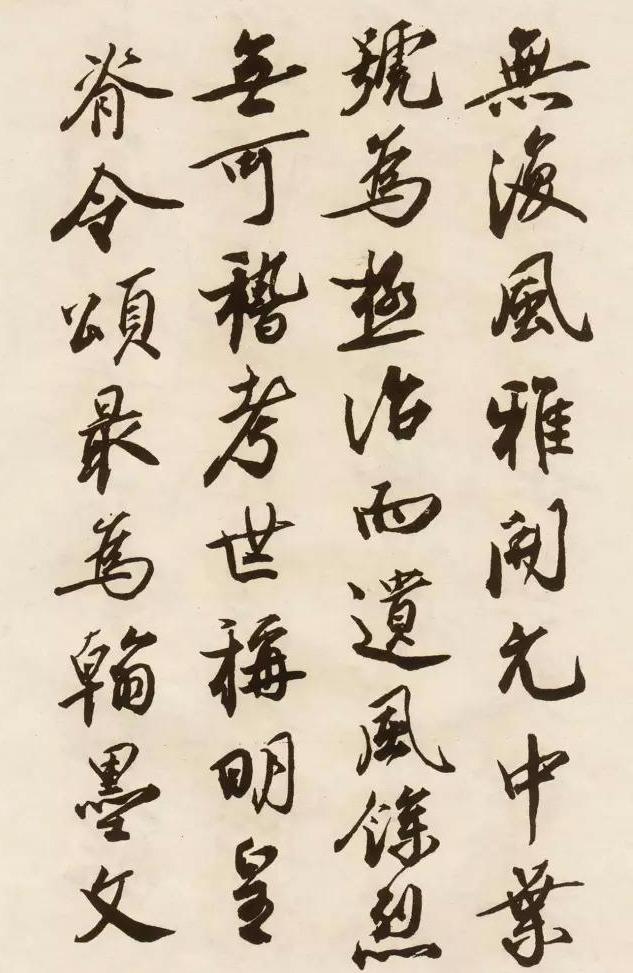 無復風雅開元中葉
號為極治而遺風餘烈
無所稽考世稱明皇
脊令頌最為翰墨文